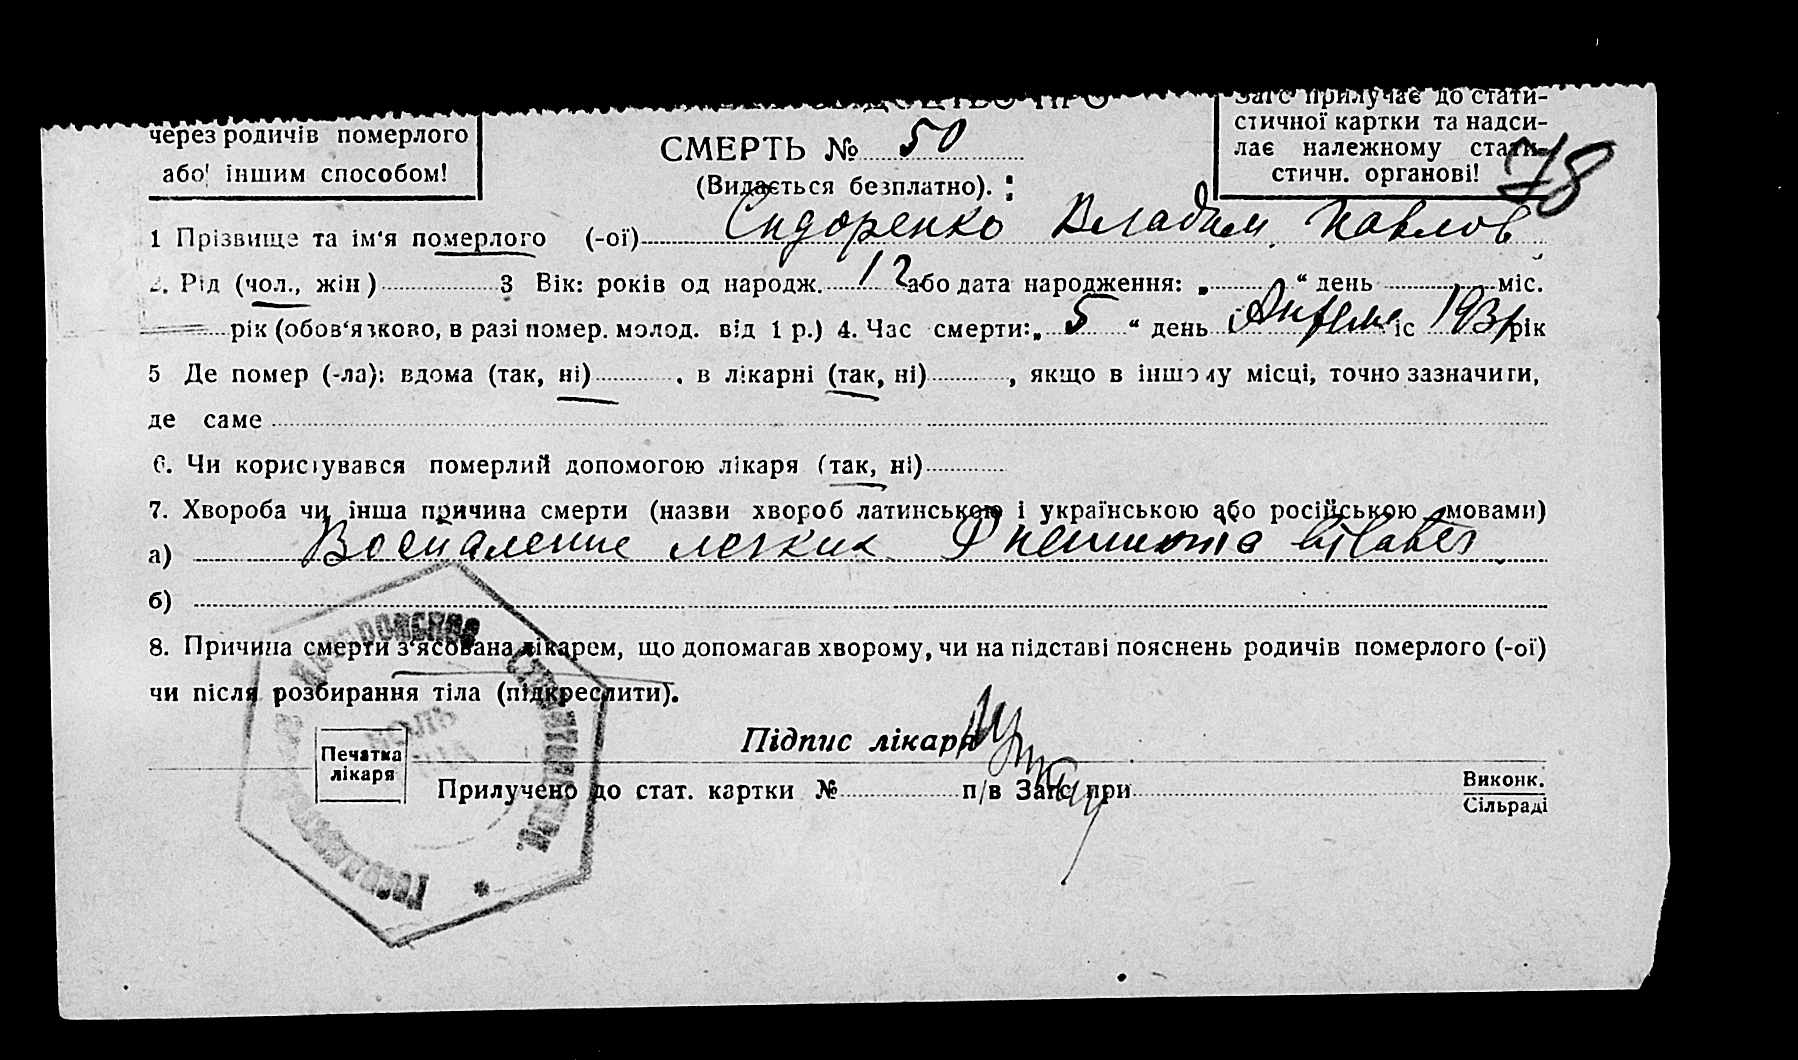 через родичів померлого
або іншим способом!
СМЕРТЬ № 50
(Видається безплатно).
Загс прилучає до стати-
стичної картки та надси-
лає належному стати-
стичн. органові!
78
1 Прізвище та ім'я померлого (-ої) Сидоренко Владим. Павлов
2. Рід (чол., жін) 3 Вік: років од народж. 12 або дата народження: „ “ день міс.
рік (обов'язково, в разі помер. молод. від 1 р.) 4. Час смерти: „ 5 “ день Апреля міс 193 рік
5 Де помер (-ла): вдома (так, ні) , в лікарні (так, ні) , якщо в іншому місці, точно зазначити,
де саме
6. Чи користувався померлий допомогою лікаря (так, ні)
7. Хвороба чи інша причина смерти (назви хвороб латинською і українською або російською мовами)
а) Воспаление легких Pneumonia bilater
б)
8. Причина смерти з'ясована лікарем, що допомагав хворому, чи на підставі пояснень родичів померлого (-ої)
чи після розбирання тіла (підкреслити).
Підпис лікаря
Печатка
лікаря
Прилучено до стат. картки № п/в Загс при
Виконк.
Сільраді